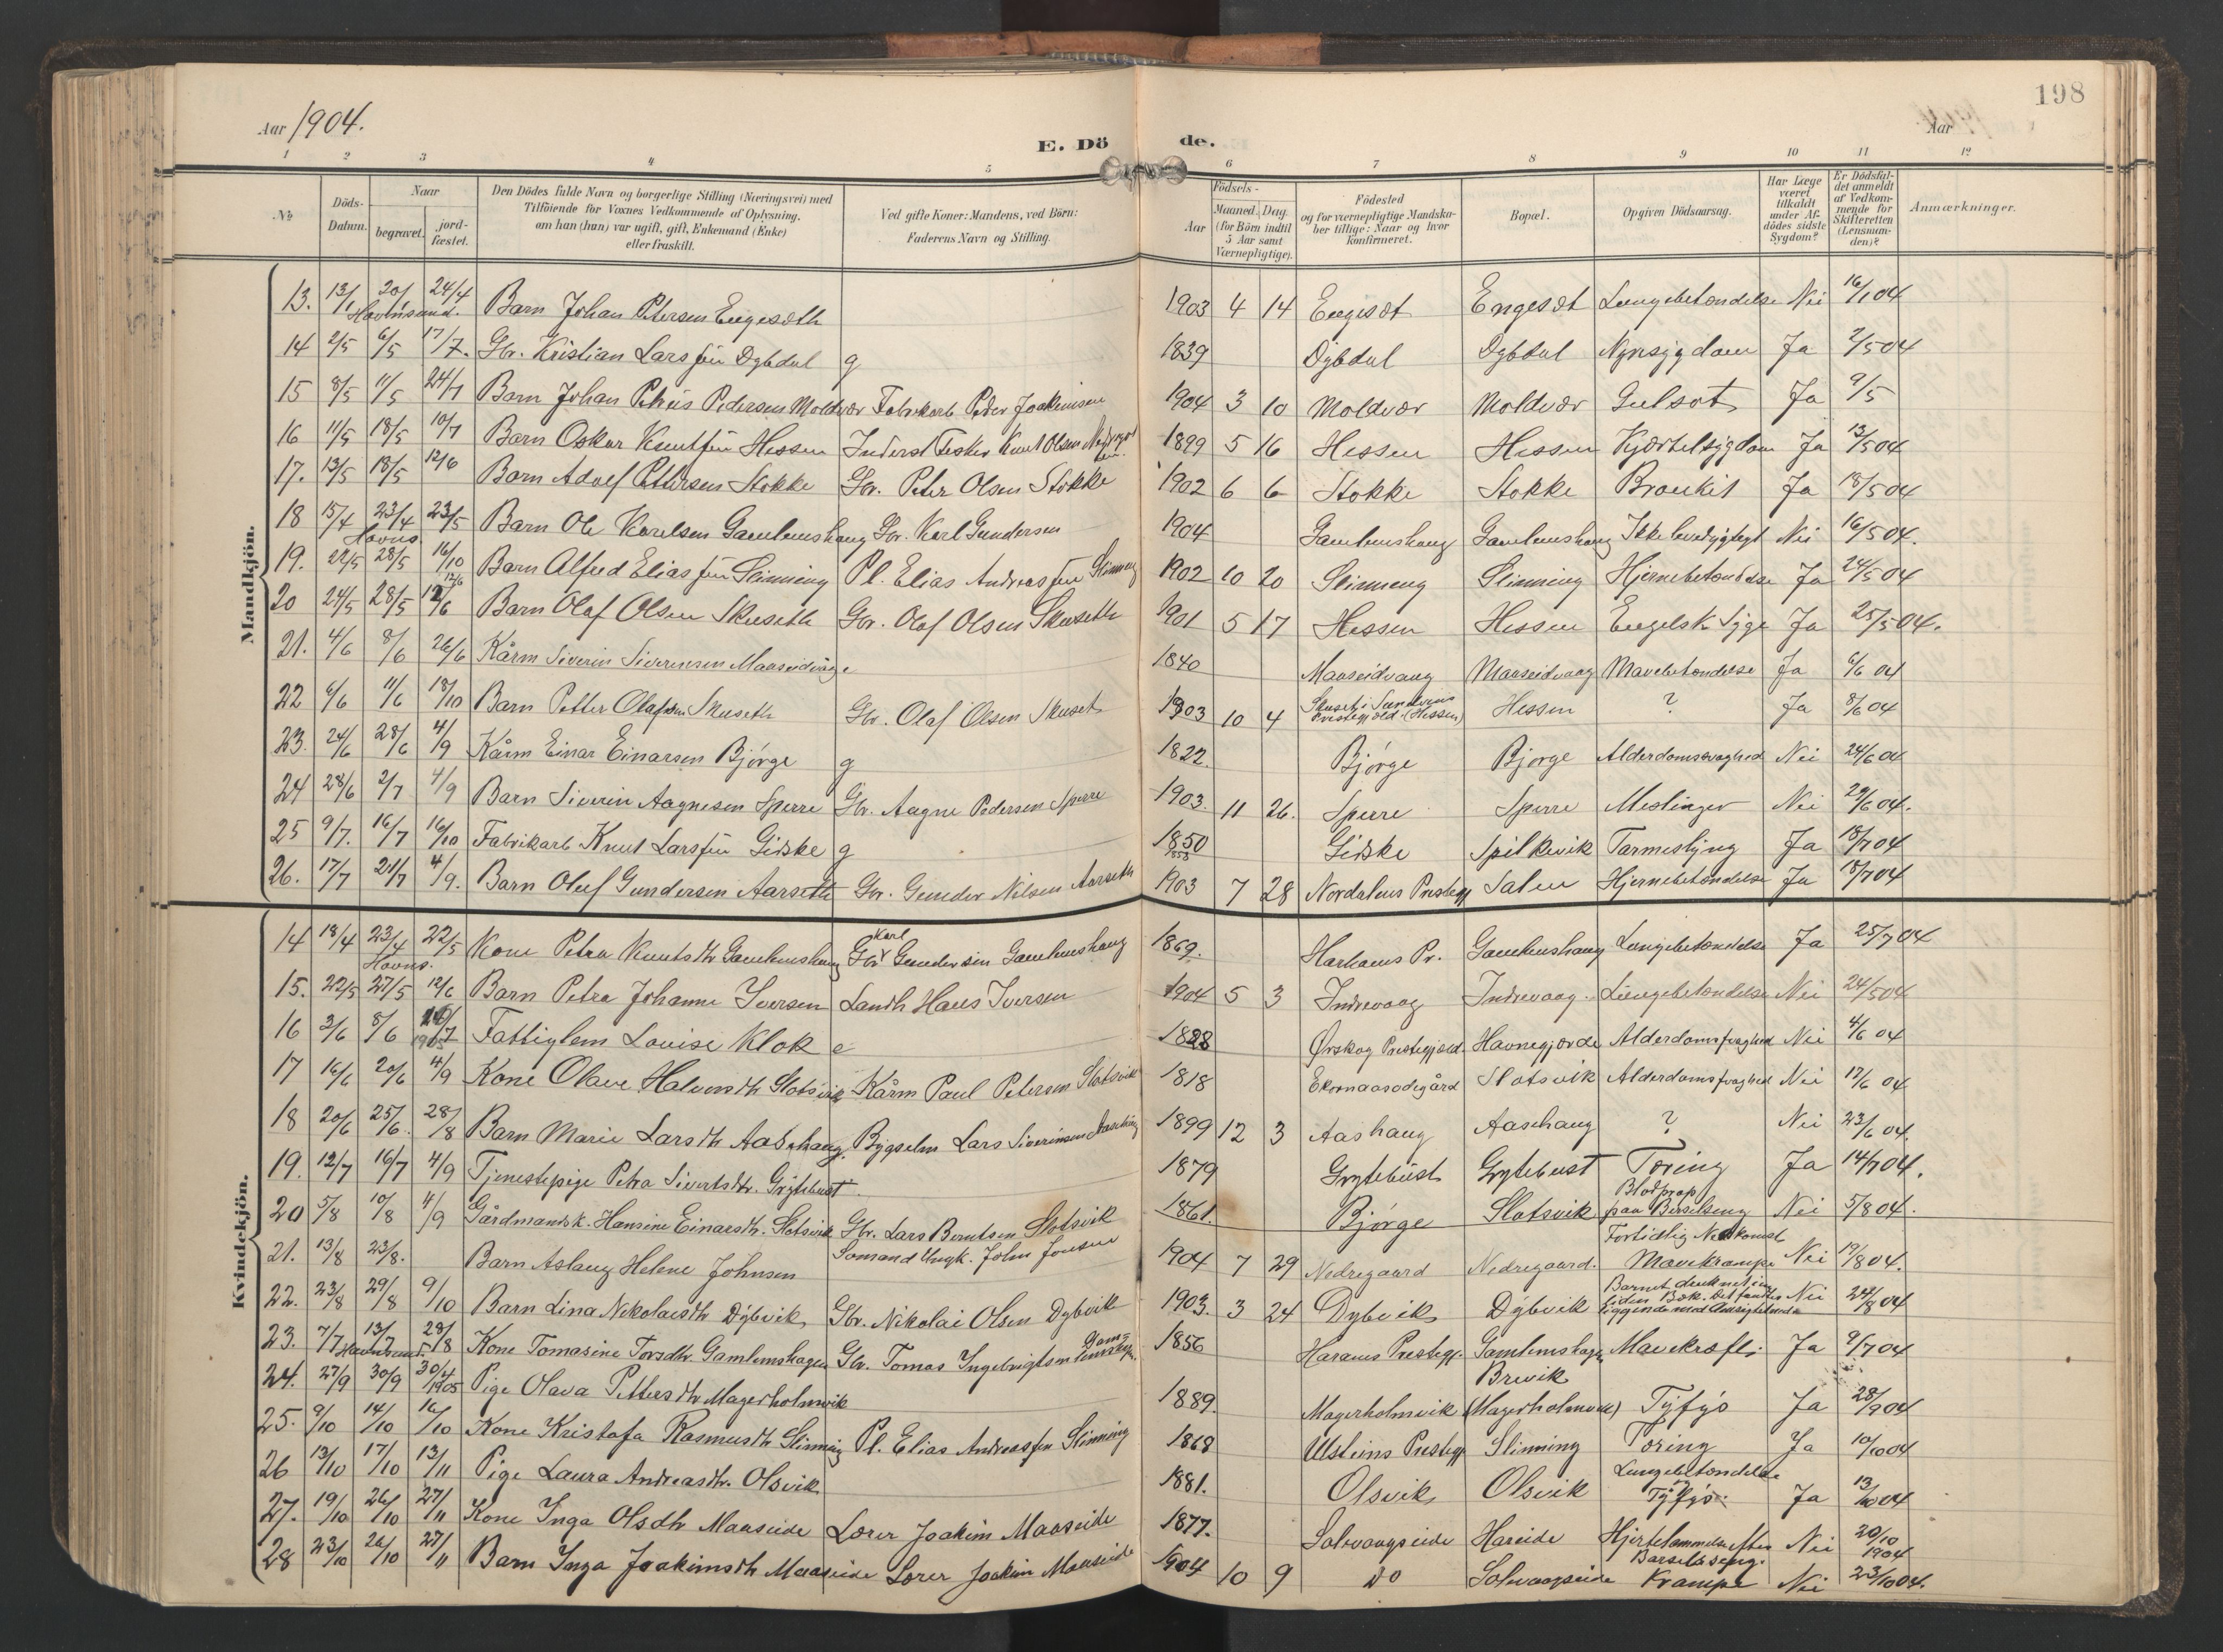 198
Aar 1904.
E. Dö de.
Aar
1 2 3 4 5 6 7 8 9 10 11 12
№
Döds-Datum.
Naar
begravet.
jord-fæstet.
Den Dödes fulde Navn og borgerlige Stilling (Næringsvei) med
Tilföiende for Voxnes Vedkommende af Oplysning,
om han (hun) var ugift, gift, Enkemand (Enke)
eller fraskilt.
Ved gifte Koner: Mandens, ved Börn:
Faderens Navn og Stilling.
Födsels-
Aar
Maaned. Dag.
(for Börn indtil
5 Aar samt
Værnepligtige).
Födested
og for værnepligtige Mandska-
ber tillige: Naar og hvor
konfirmeret.
Bopæl.
Opgiven Dödsaarsag.
Har Læge
været
tilkaldt
under Af-
dödes sidste
Sygdom?
Er Dödsfal-
det anmeldt
af Vedkom-
mende for
Skifteretten
(Lensman-
den)?
Anmærkninger.
Mandkjön.
13. 13/1 20/1 24/4 Barn Johan Petersen Engesæth 1903 4 14 Engesæt Engesæt Lungebetændelse Nei 16/1 04
Havnsund.
14 2/5 6/5 17/7. Gbr. Kristian Larssen Dybdal g 1839 Dybdal Dybdal Nyresygdom Ja 2/5 04
15 8/5 11/5 24/7 Barn Johan Petrus Pedersen Moldvær Fabrikarb Peder Joakimsen 1904 3 10 Moldvær Moldvær Gulsot Ja 9/5
16 11/5 18/5 10/7 Barn Oskar Knutsen Hessen Inderst Fisker Knut Olsen 1899 5 16 Hessen Hessen Kjærtelsygdom Ja 13/5 04
17. 13/5 18/5 12/6 Barn Adolf Pettersen Stokke Gbr. Peter Olsen Stokke 1902 6 6 Stokke Stokke Bronkit Ja 18/5 04
18 15/4 23/4 23/5 Barn Ole Karelsen Gamlemshaug Gbr. Karl Gundersen 1904 Gamlemshaug Gamlemshaug Ikke levedygtigt Nei 16/5 04.
Havns.
19. 22/5 28/5 16/10 Barn Alfred Eliassen Slinning Pl. Elias Andreassen Slinning 1902 10 20 Slinning Slinning Hjernebetændelse Ja 24/5 04
20 24/5 28/5 12/6 12/6 Barn Olaf Olsen Skuseth Gbr. Olaf Olsen Skuseth 1901 5 17 Hessen Hessen Engelsk Syge Ja 25/5 04.
21. 4/6 8/6 26/6 Kårm Siverin Siverinsen Maaseidvåg e 1840 Maaseidvaag Maaseidvaag Mavebetændelse Ja 6/6 04
22 6/6 11/6 18/10 Barn Petter Olafsen Skuseth Gbr. Olaf Olsen Skuset 1903 10 4 Skuset i Søndvens Prestegjeld. (Hessen) Hessen ? Ja 8/6 04
23. 24/6 28/6 4/9 Kårm Einar Einarsen Bjørge g 1822. Bjørge Bjørge Alderdomssvaghed Nei 24/6 04
24 28/6 2/7 4/9 Barn Siverin Aagnesen Sperre Gbr. Aagne Pedersen Sperre 1903. 11 26. Sperre Sperre Meslinger Nei 29/6 04.
25 9/7. 16/7 16/10 Fabrikarb Knut Larssen Giske g 1850 Giske Spilkevik Tarmeslyng Ja 18/7 04
26. 17/7 21/7 4/9. Barn Oluf Gundersen Aarseth Gbr. Gunder Nilsen Aarseth 1903 7 28 Nordalens Prestegj Salen Hjernebetændelse Ja 18/7 04
Kvindekjön.
14 18/4 23/4 22/5 Kone Petra Knutsdtr Gamlemshaug Gbr Karl Gundersen Gamlemshaug 1869. Harhams Pr. Gamlemshaug Lungebetændelse Ja 25/7 04
Havns.
15. 22/5 27/5 12/6 Barn Petra Johanne Iversen Landh Hans Iversen 1904 5 3 Indrevaag Indrevaag. Lungebetændelse Nei 24/5 04
16 3/6 8/6 1905 Fattiglem Lovise Klok e 1828 Ørskog Prestegjæld. Havnegjærde Alderdomssvaghed Nei 4/6 04
17 16/6 20/6 4/9 Kone Olave Halvorsdtr Slotsvik Kårm Paul Petersen Slotsvik 1818 Ekornaasødegård Slotsvik Alderdomssvaghed Nei 17/6 04
18 20/6 25/6. 28/8 Barn Marie Larsdtr Aasehaug. Bygselm Lars Siverinsen Aasehaug 1899 12 3 Aashaug Aasehaug ? Nei 23/6 04.
19. 12/7 16/7 4/9 Tjenestepige Petra Sivertsdtr. Grytebust 1879 Grytebust Grytebust Tæring Ja 14/7 04.
20 5/8 10/8 4/9 Gårdmandsk. Hansine Einarsdtr. Slotsvik Gbr. Lars Berntsen Slotsvik 1861. Bjørge Slotsvik Blodprop paa Barselseng Nei 5/8 04.
21. 13/8 23/8. Barn Aslaug Helene Johnsen Sømand Ungk. John Jonsen 1904 7 29 Nedregaard Nedregaard. Fortidlig Nedkomst Mavekrampe Nei 19/8 04.
22. 23/8 29/8 9/10 Barn Lina Nikolaisdtr Dybvik Gbr. Nikolai Olsen Dybvik 1903. 3 24 Dybvik Dybvik Barnet druknet i en liden Bæk. Det fandtes liggende med Ansigtet Nei 24/8 04
23. 7/7 13/7 28/8 Kone Tomasine Torsdtr. Gamlemshagen Gbr. Tomas Ingebrigtsen 1856 Harams Prestegj. Gamlemshagen Mavekræft Ja 9/7 04
Havnsund.
24. 27/9 30/9 30/4 1905 Pige Olava Pettersdtr Magerholmvik 1889. Magerholmvik Brevik (Magerholmvik) Tyfys Ja 28/9 04
25. 9/10 14/10 16/10 Kone Kristofa Rasmusdtr Slinning Pl. Elias Andreassen Slinning 1868 Ulsteins Prestegj Slinning Tæring Ja 10/10 04
26 13/10 17/10 13/11 Pige Laura Andreasdtr. Olsvik 1881. Olsvik Olsvik Lungebetændelse og Tyfys. Ja 13/10 04
27. 19/10 26/10 27/11 Kone Inga Olsdtr Maaseide Lærer Joakim Maaseide 1877. Solvaagseide Hareide Hjertelammelse efter Barselsseng. Nei 20/10 1904
28 23/10 26/10 27/11 Barn Inga Joakimsdtr Maaseide Lærer Joakim Maaseide 1904 10 9 Do Solvaagseide Krampe Nei 23/10 04.